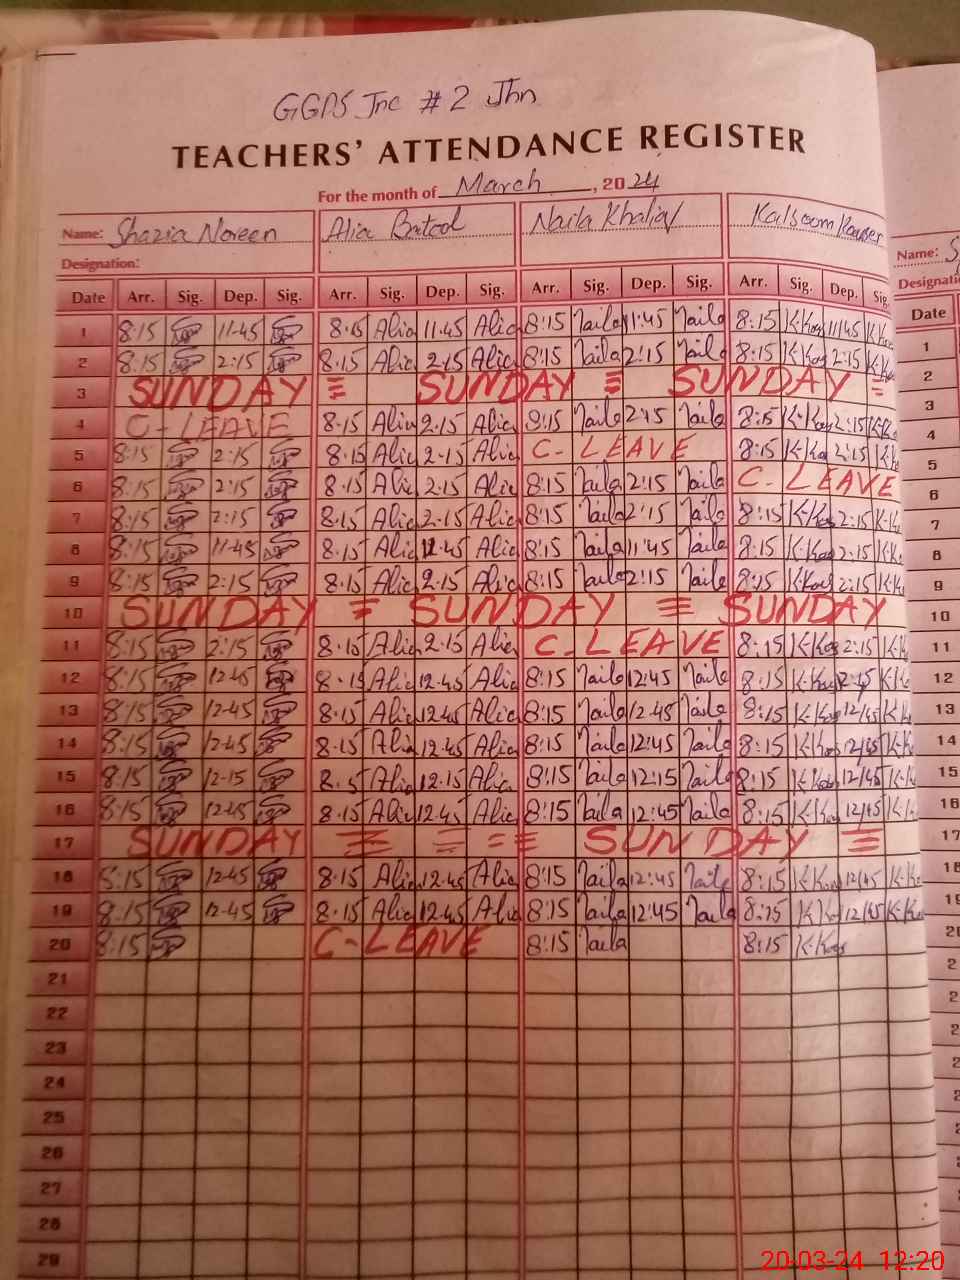 GGPS Jnc # 2 Jhn
TEACHERS' ATTENDANCE REGISTER
For the month of March, 2024
Name: Shazia Noreen Alia Batool Naila Khaliq Kalsoom Kawser Name: S
Designation: Designati
Date Arr. Sig. Dep. Sig. Arr. Sig. Dep. Sig. Arr. Sig. Dep. Sig. Arr. Sig. Dep. Sig. Date
1 8:15 11-45 8.15 Alia 11.45 Alia 8:15 Naila 11:45 Naila 8:15 11/45 1
2 8:15 2:15 8.15 Alia 2.15 Alia 8:15 Naila 2:15 Naila 8:15 2:15 2
3 SUNDAY SUNDAY SUNDAY 3
4 C-LEAVE 8.15 Alia 2.15 Alia 8:15 Naila 2:15 Naila 8:15 2:15 4
5 8:15 2:15 8.15 Alia 2.15 Alia C- LEAVE 8:15 2:15 5
6 8:15 2:15 8.15 Alia 2.15 Alia 8:15 Naila 2:15 Naila C. LEAVE 6
7 8:15 2:15 8.15 Alia 2.15 Alia 8:15 Naila 2:15 Naila 8:15 2:15 7
8 8:15 11-45 8.15 Alia 11.45 Alia 8:15 Naila 11:45 Naila 8:15 2:15 8
9 8:15 2:15 8.15 Alia 2.15 Alia 8:15 Naila 2:15 Naila 8:15 2:15 9
10 SUNDAY SUNDAY SUNDAY 10
11 8:15 2:15 8.15 Alia 2.15 Alia C-LEAVE 8:15 2:15 11
12 8:15 12-45 8.15 Alia 12.45 Alia 8:15 Naila 12:45 Naila 8:15 12
13 8:15 12-45 8.15 Alia 12.45 Alia 8:15 Naila 12:45 Naila 8:15 12/45 13
14 8:15 12-45 8.15 Alia 12.45 Alia 8:15 Naila 12:45 Naila 8:15 12/45 14
15 8:15 12-15 8.15 Alia 12.15 Alia 8:15 Naila 12:15 Naila 8:15 12/45 15
16 8:15 12-45 8.15 Alia 12.45 Alia 8:15 Naila 12:45 Naila 8:15 12/45 16
17 SUNDAY SUNDAY 17
18 8:15 12-45 8.15 Alia 12.45 Alia 8:15 Naila 12:45 Naila 8:15 12/45 18
19 8:15 12-45 8.15 Alia 12.45 Alia 8:15 Naila 12:45 Naila 8:15 12/45 19
20 8:15 C-LEAVE 8:15 Naila 8:15 20
21 2
22 2
23 2
24 2
25
26
27
28
29
20-03-24 12:20